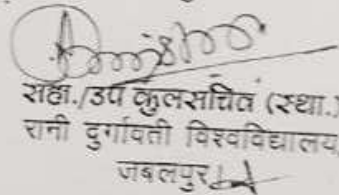 सहा./उप कुलसचिव (स्था.)
रानी दुर्गावती विश्वविद्यालय
जबलपुर